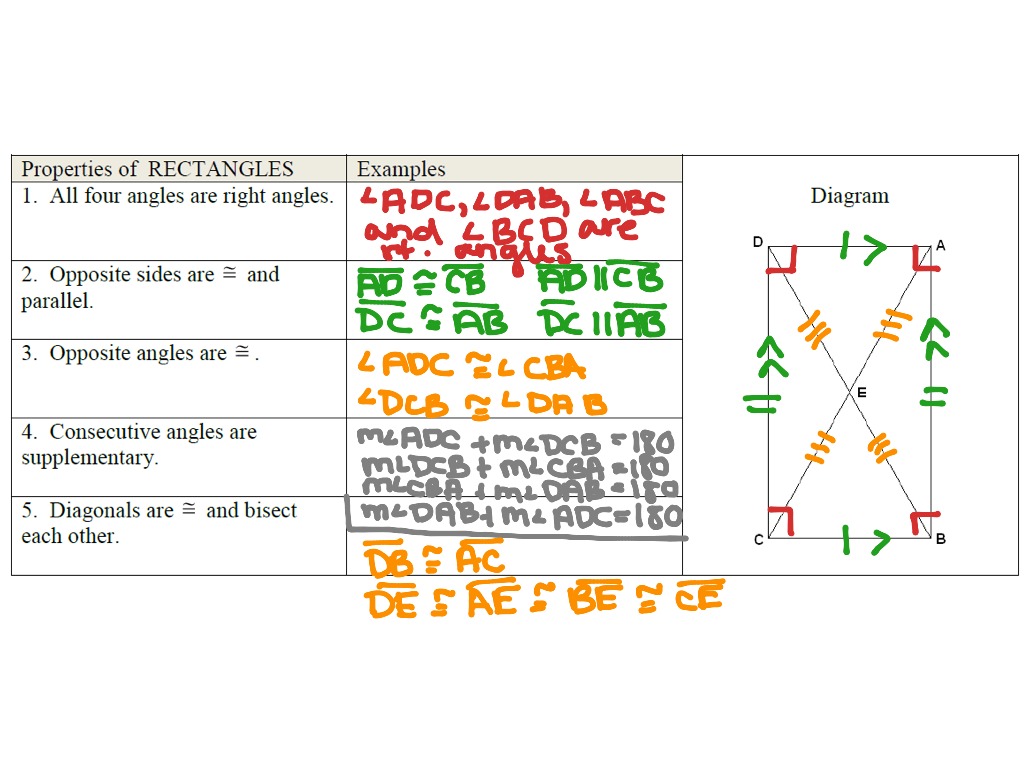 Properties of RECTANGLES
Examples
1. All four angles are right angles.
∠ADC, ∠DAB, ∠ABC
and ∠BCD are
rt. angles
2. Opposite sides are ≅ and
parallel.
A̅D̅ ≅ C̅B̅ A̅D̅ || C̅B̅
D̅C̅ ≅ A̅B̅ D̅C̅ || A̅B̅
3. Opposite angles are ≅ .
∠ADC ≅ ∠CBA
∠DCB ≅ ∠DAB
4. Consecutive angles are
supplementary.
m∠ADC + m∠DCB = 180
m∠DCB + m∠CBA = 180
m∠CBA + m∠DAB = 180
m∠DAB + m∠ADC = 180
5. Diagonals are ≅ and bisect
each other.
D̅B̅ ≅ A̅C̅
D̅E̅ ≅ A̅E̅ ≅ B̅E̅ ≅ C̅E̅
Diagram
D
A
E
C
B